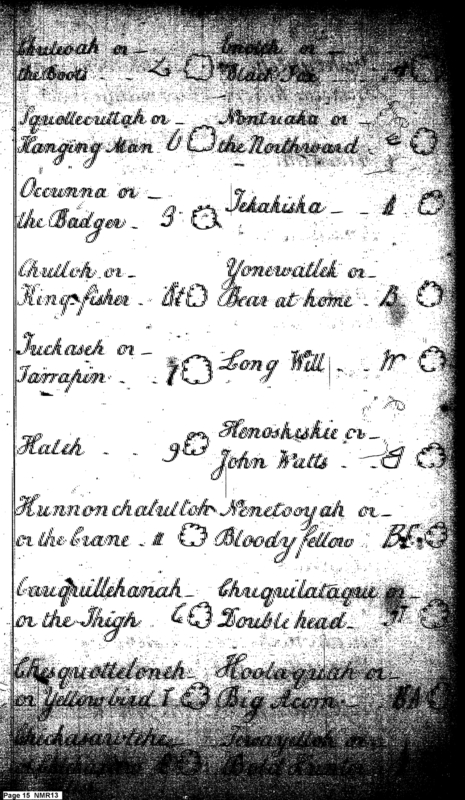 Chuleoah or
the Boots
Enolch or
Black Fox
Squollecuttah or
Hanging Man
Nontuaka or
the Northward
Occunna or
the Badger
Tekakiska
Chulloh or
King fisher
Yonewatleh or
Bear at home
Tuckaseh or
Tarrapin
Long Will W
Kateh
Kenoskeskie or
John Watts
Kunnonchatuttoh
or the Crane
Nenetooyah or
Bloody fellow
Cauquillehanah
or the Thigh
Chuquilataque or
Double head
Chesquotteloneh
or Yellow bird
Hoolaquah or
Big Acorn
Chickasawtehe
Towayelloh or
Bold Hunter
Page 15 NMR13